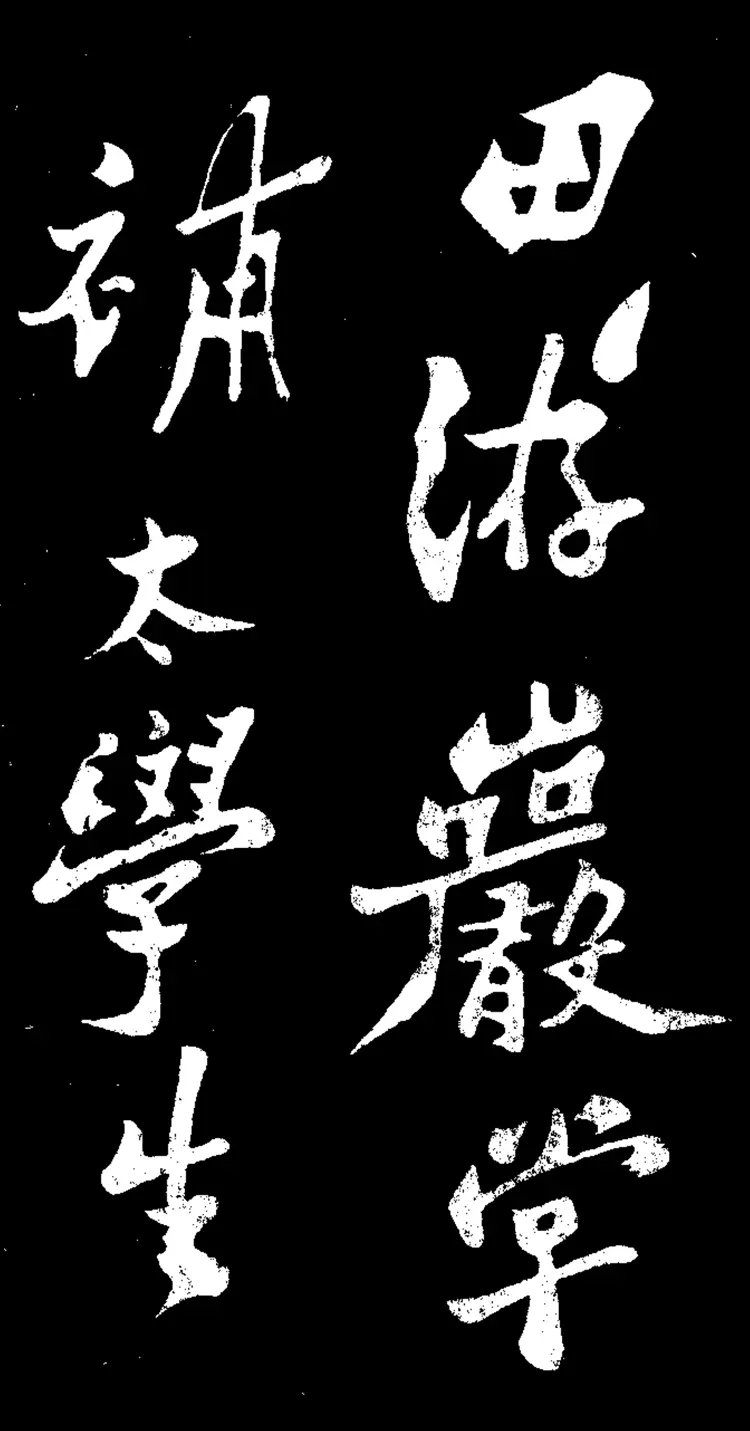 田游巖常
補太學生